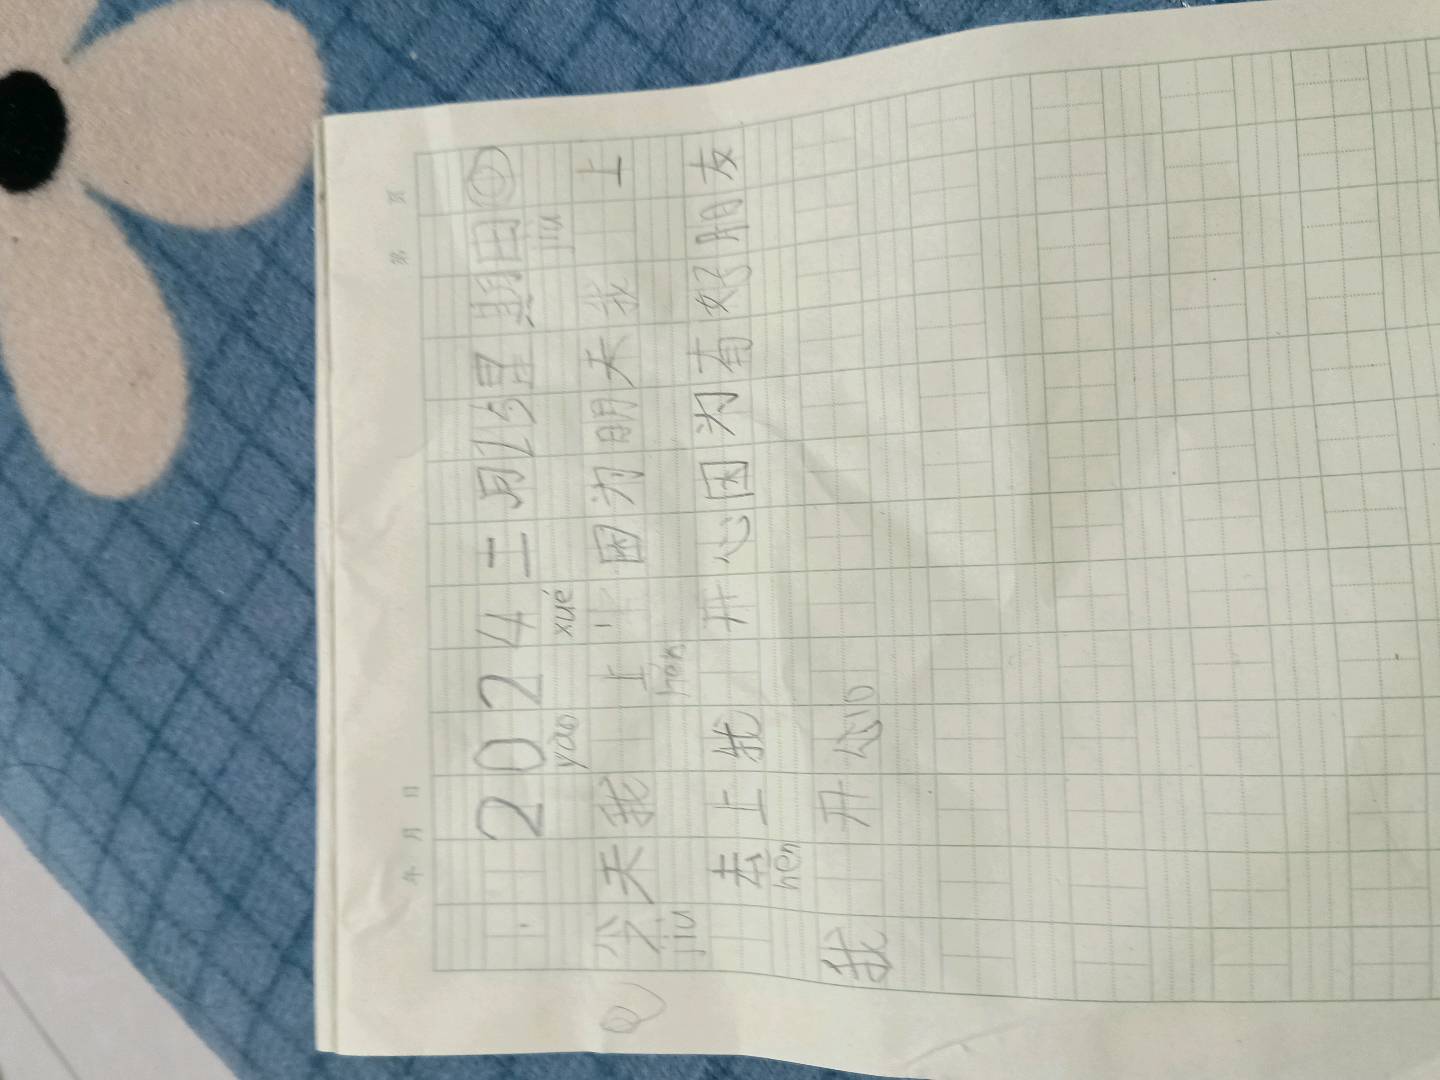 年 月 日 第 页
2024二月15星期日
yao xué jiu
今天我 上 因为明天我 上
jiu hěn
去上我 开心因为有好朋友
hen
我 开心